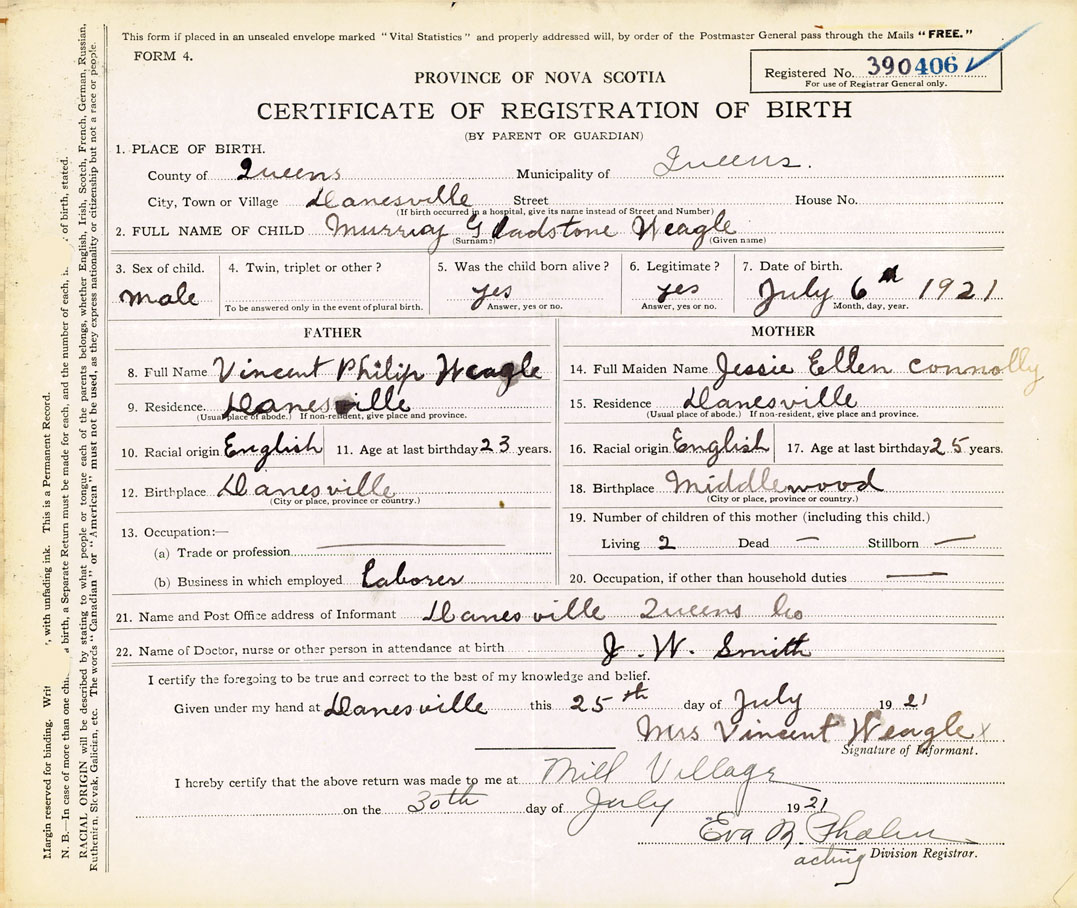 This form if placed in an unsealed envelope marked "Vital Statistics" and properly addressed will, by order of the Postmaster General pass through the Mails "FREE."
FORM 4.
Registered No. 390406
For use of Registrar General only.
PROVINCE OF NOVA SCOTIA
CERTIFICATE OF REGISTRATION OF BIRTH
(BY PARENT OR GUARDIAN)
1. PLACE OF BIRTH.
County of Queens Municipality of Queens.
City, Town or Village Danesville Street House No.
(If birth occurred in a hospital, give its name instead of Street and Number)
2. FULL NAME OF CHILD Murray Gladstone Weagle
(Surname) (Given name)
3. Sex of child. 4. Twin, triplet or other? 5. Was the child born alive? 6. Legitimate? 7. Date of birth.
Male yes yes July 6th 1921
To be answered only in the event of plural birth. Answer, yes or no. Answer, yes or no. Month, day, year.
FATHER
8. Full Name Vincent Philip Weagle
9. Residence. Danesville
(Usual place of abode.) If non-resident, give place and province.
10. Racial origin English 11. Age at last birthday 23 years.
12. Birthplace Danesville
(City or place, province or country.)
13. Occupation:—
(a) Trade or profession
(b) Business in which employed Laborer
MOTHER
14. Full Maiden Name Jessie Ellen Connolly
15. Residence Danesville
(Usual place of abode.) If non-resident, give place and province.
16. Racial origin English 17. Age at last birthday 25 years.
18. Birthplace Middlewood
(City or place, province or country.)
19. Number of children of this mother (including this child.)
Living 2 Dead — Stillborn —
20. Occupation, if other than household duties —
21. Name and Post Office address of Informant Danesville Queens Co
22. Name of Doctor, nurse or other person in attendance at birth J. W. Smith
I certify the foregoing to be true and correct to the best of my knowledge and belief.
Given under my hand at Danesville this 25th day of July 1921
Mrs Vincent Weagle x
Signature of Informant.
I hereby certify that the above return was made to me at Mill Village
on the 30th day of July 1921
Eva M. Phalen
acting Division Registrar.
Margin reserved for binding. Writ , with unfading ink. This is a Permanent Record.
N. B.—In case of more than one chi birth, a Separate Return must be made for each, and the number of each, i of birth, stated.
RACIAL ORIGIN will be described by stating to what people or tongue each of the parents belongs, whether English, Irish, Scotch, French, German, Russian,
Ruthenian, Slovak, Galician, etc. The words "Canadian" or "American" must not be used, as they express nationality or citizenship but not a race or people.